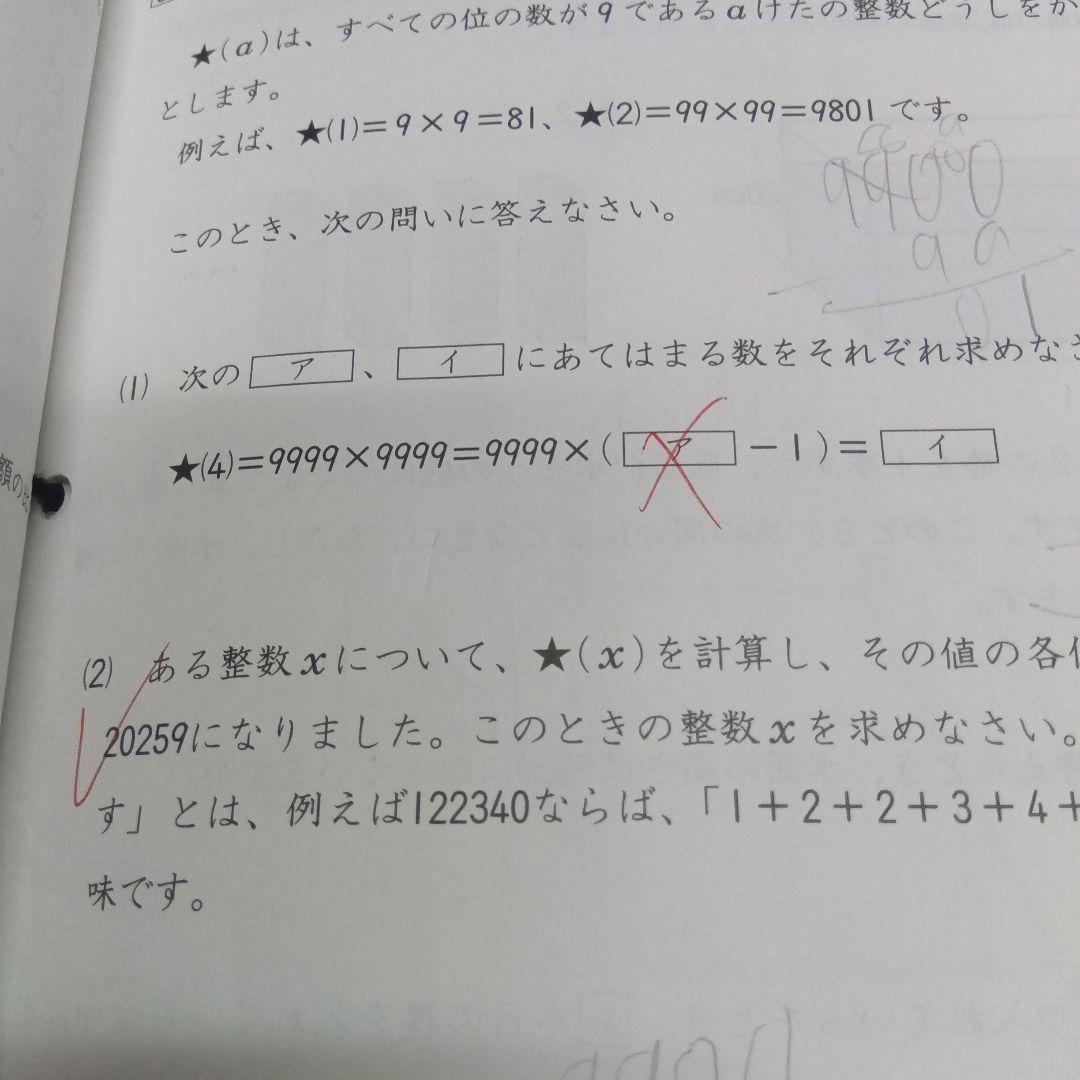 ★(a)は、すべての位の数が9であるaけたの整数どうしをか
とします。
例えば、★(1)=9×9=81、★(2)=99×99=9801です。
このとき、次の問いに答えなさい。
(1) 次の ア 、 イ にあてはまる数をそれぞれ求めなさ
★(4)=9999×9999=9999×( ア －1)= イ
(2) ある整数xについて、★(x)を計算し、その値の各位
20259になりました。このときの整数xを求めなさい。
す」とは、例えば122340ならば、「1+2+2+3+4+
味です。